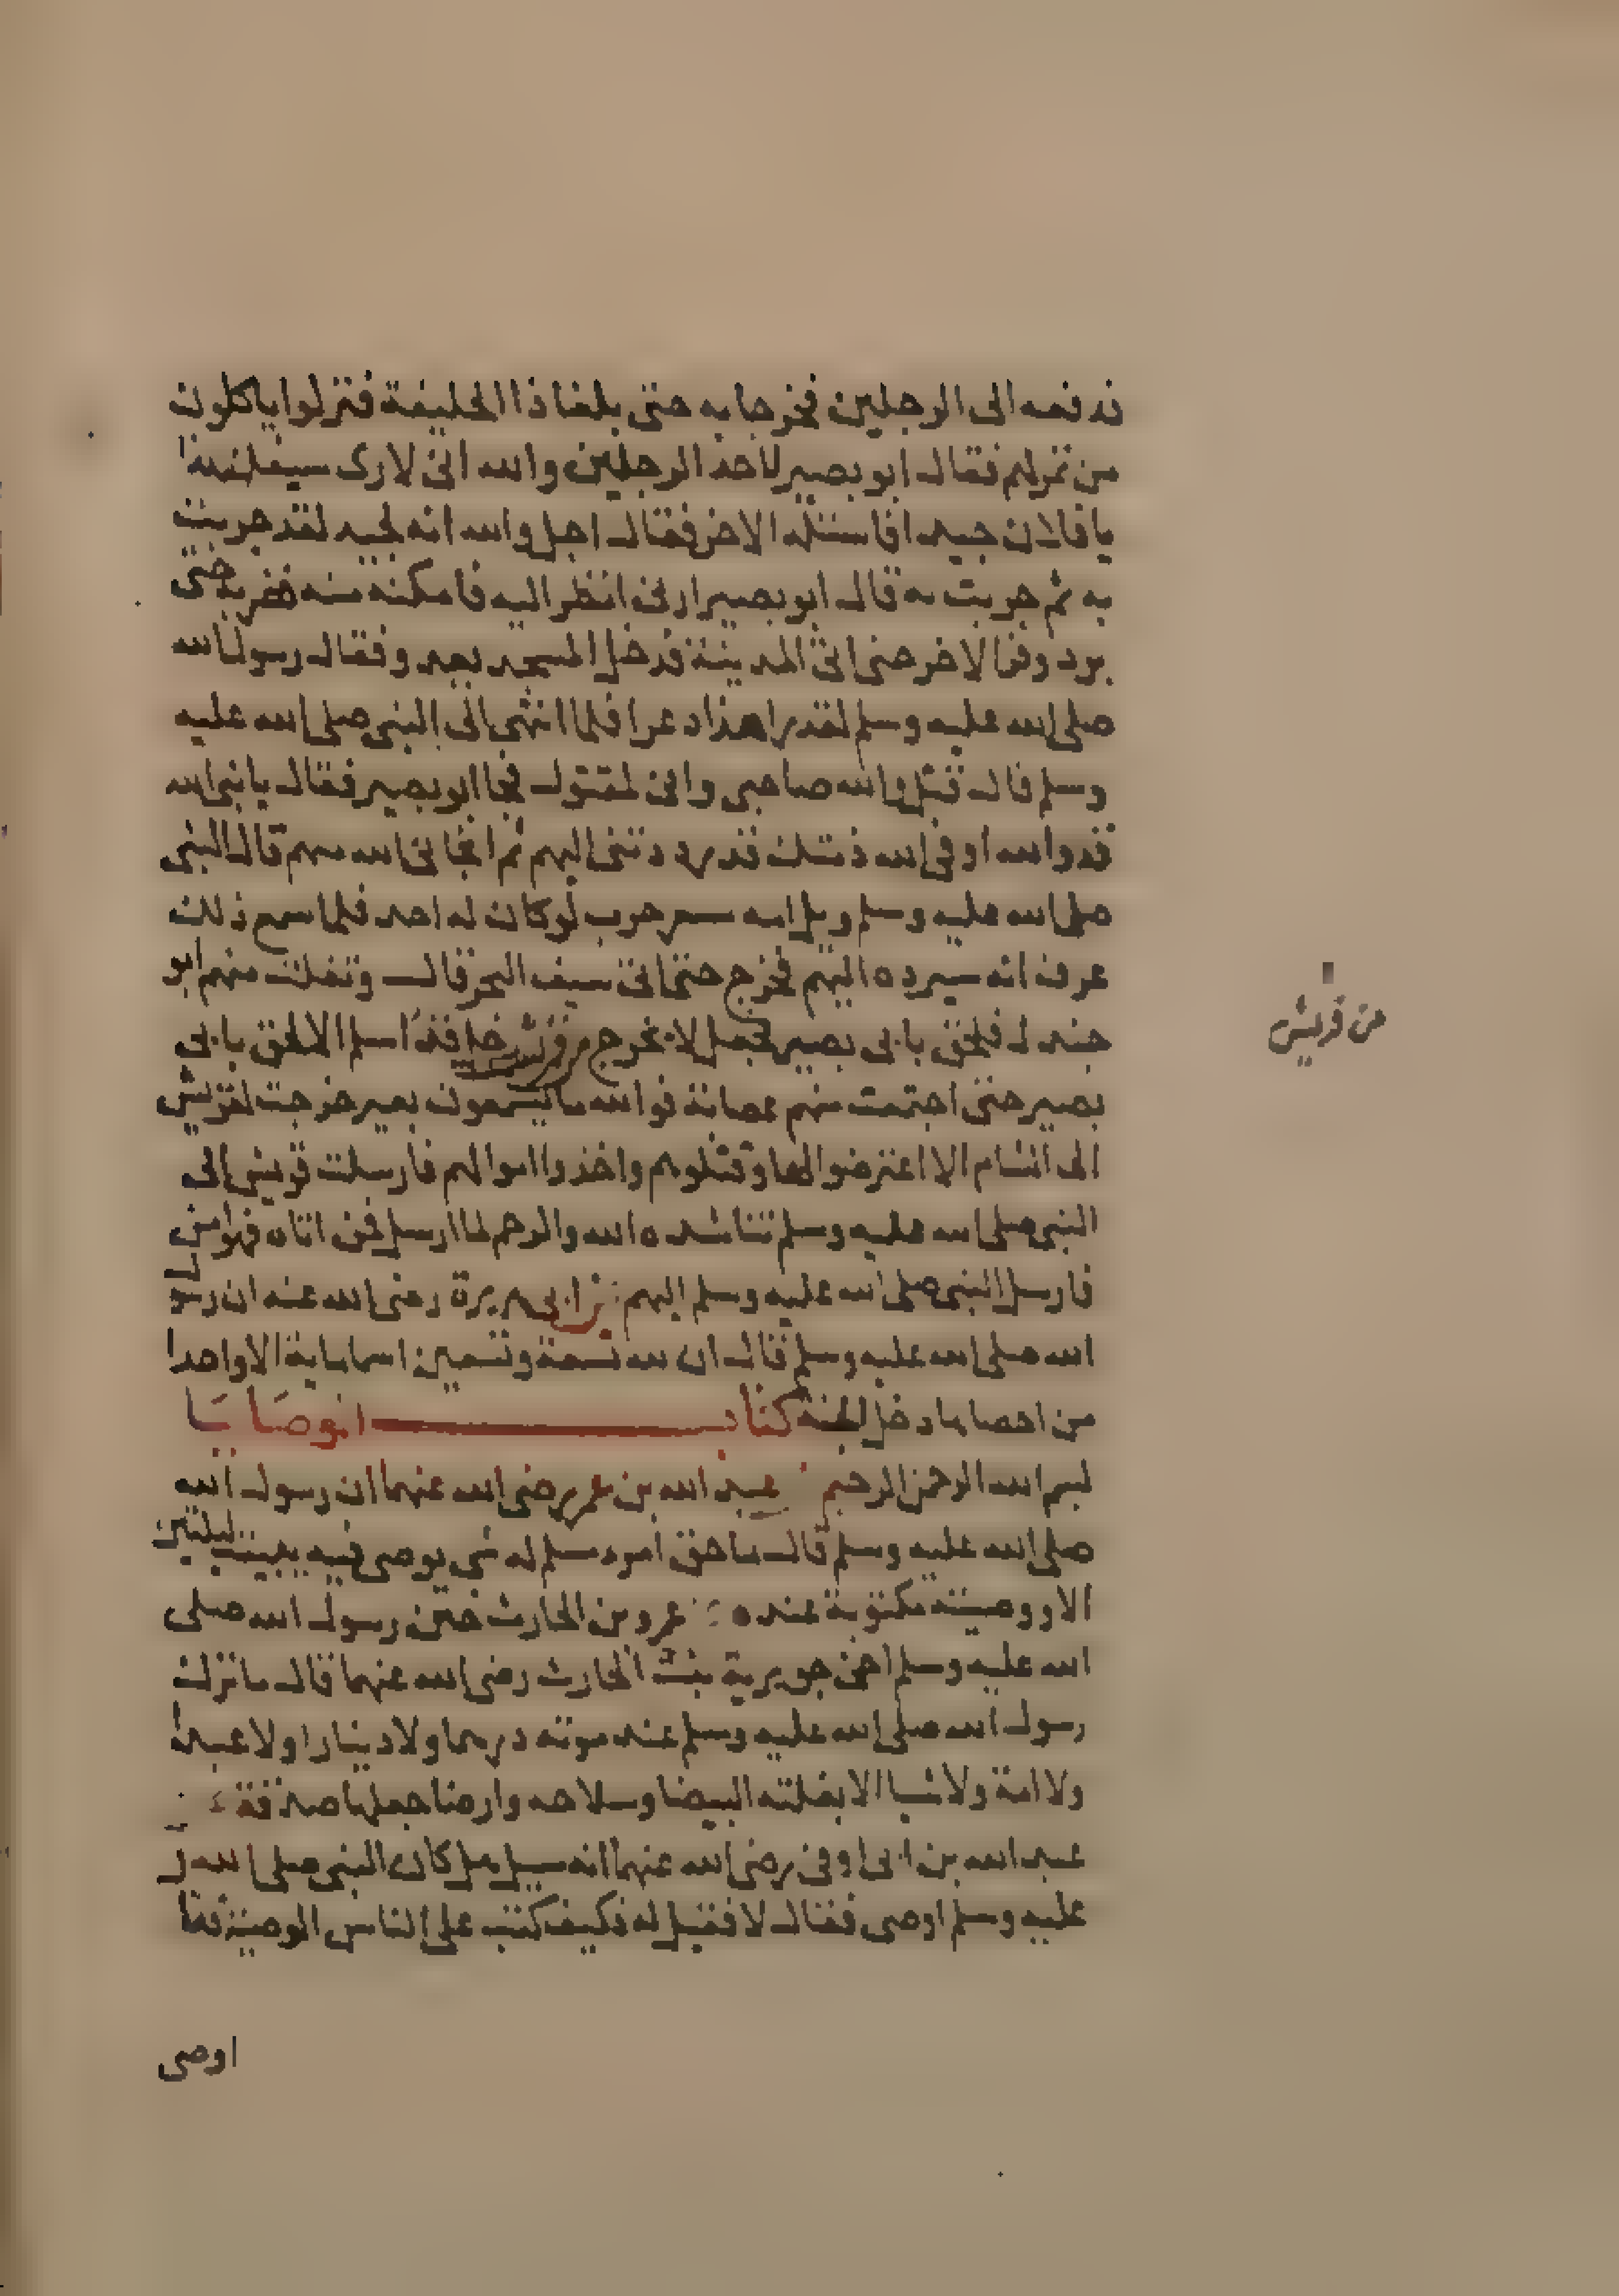 فدفعه الى الرجلين فخرجا به حتى بلغا ذا الحليفة فنزلوا ياكلون
من تمر لهم فقال ابو بصير لاحد الرجلين والله اني لارى سيفك هذا
يا فلان جيدا فاستله الاخر فقال اجل والله انه لجيد لقد جربت
به ثم جربت به قال ابو بصير ارني انظر اليه فامكنه منه فضربه حتى
برد وفر الاخر حتى اتى المدينة فدخل المسجد يعدو فقال رسول الله
صلى الله عليه وسلم لقد راى هذا ذعرا فلما انتهى الى النبي صلى الله عليه
وسلم قال قتل والله صاحبي واني لمقتول فجا ابو بصير فقال يا نبي الله
قد والله اوفى الله ذمتك قد رددتني اليهم ثم انجاني الله منهم قال النبي
صلى الله عليه وسلم ويل امه مسعر حرب لو كان له احد فلما سمع ذلك
عرف انه سيرده اليهم فخرج حتى اتى سيف البحر قال وتفلت منهم ابو
جندل فلحق بابي بصير فجعل لا يخرج من قريش رجل قد اسلم الا لحق بابي
من قريش
بصير حتى اجتمعت منهم عصابة فوالله ما يسمعون بعير خرجت لقريش
الى الشام الا اعترضوا لها وقتلوهم واخذوا اموالهم فارسلت قريش الى
النبي صلى الله عليه وسلم تناشده الله والرحم لما ارسل فمن اتاه فهو امن
فارسل النبي صلى الله عليه وسلم اليهم عن ابي هريرة رضى الله عنه ان رسول
الله صلى الله عليه وسلم قال ان لله تسعة وتسعين اسما ماية الا واحدا
من احصاها دخل الجنة كتاب الوصايا
بسم الله الرحمن الرحيم عبد الله بن عمر رضى الله عنهما ان رسول الله
صلى الله عليه وسلم قال ما حق امرء مسلم له شي يوصى فيه يبيت ليلتين
الا ووصيته مكتوبة عنده عمرو بن الحارث ختن رسول الله صلى
الله عليه وسلم اخى جويرية بنت الحارث رضى الله عنهما قال ما ترك
رسول الله صلى الله عليه وسلم عند موته درهما ولا دينارا ولا عبدا
ولا امة ولا شيا الا بغلته البيضا وسلاحه وارضا جعلها صدقة
عبد الله بن ابى اوفى رضى الله عنهما انه سيل هل كان النبي صلى الله
عليه وسلم اوصى فقال لا فقيل له فكيف كتب على الناس الوصية
اوصى